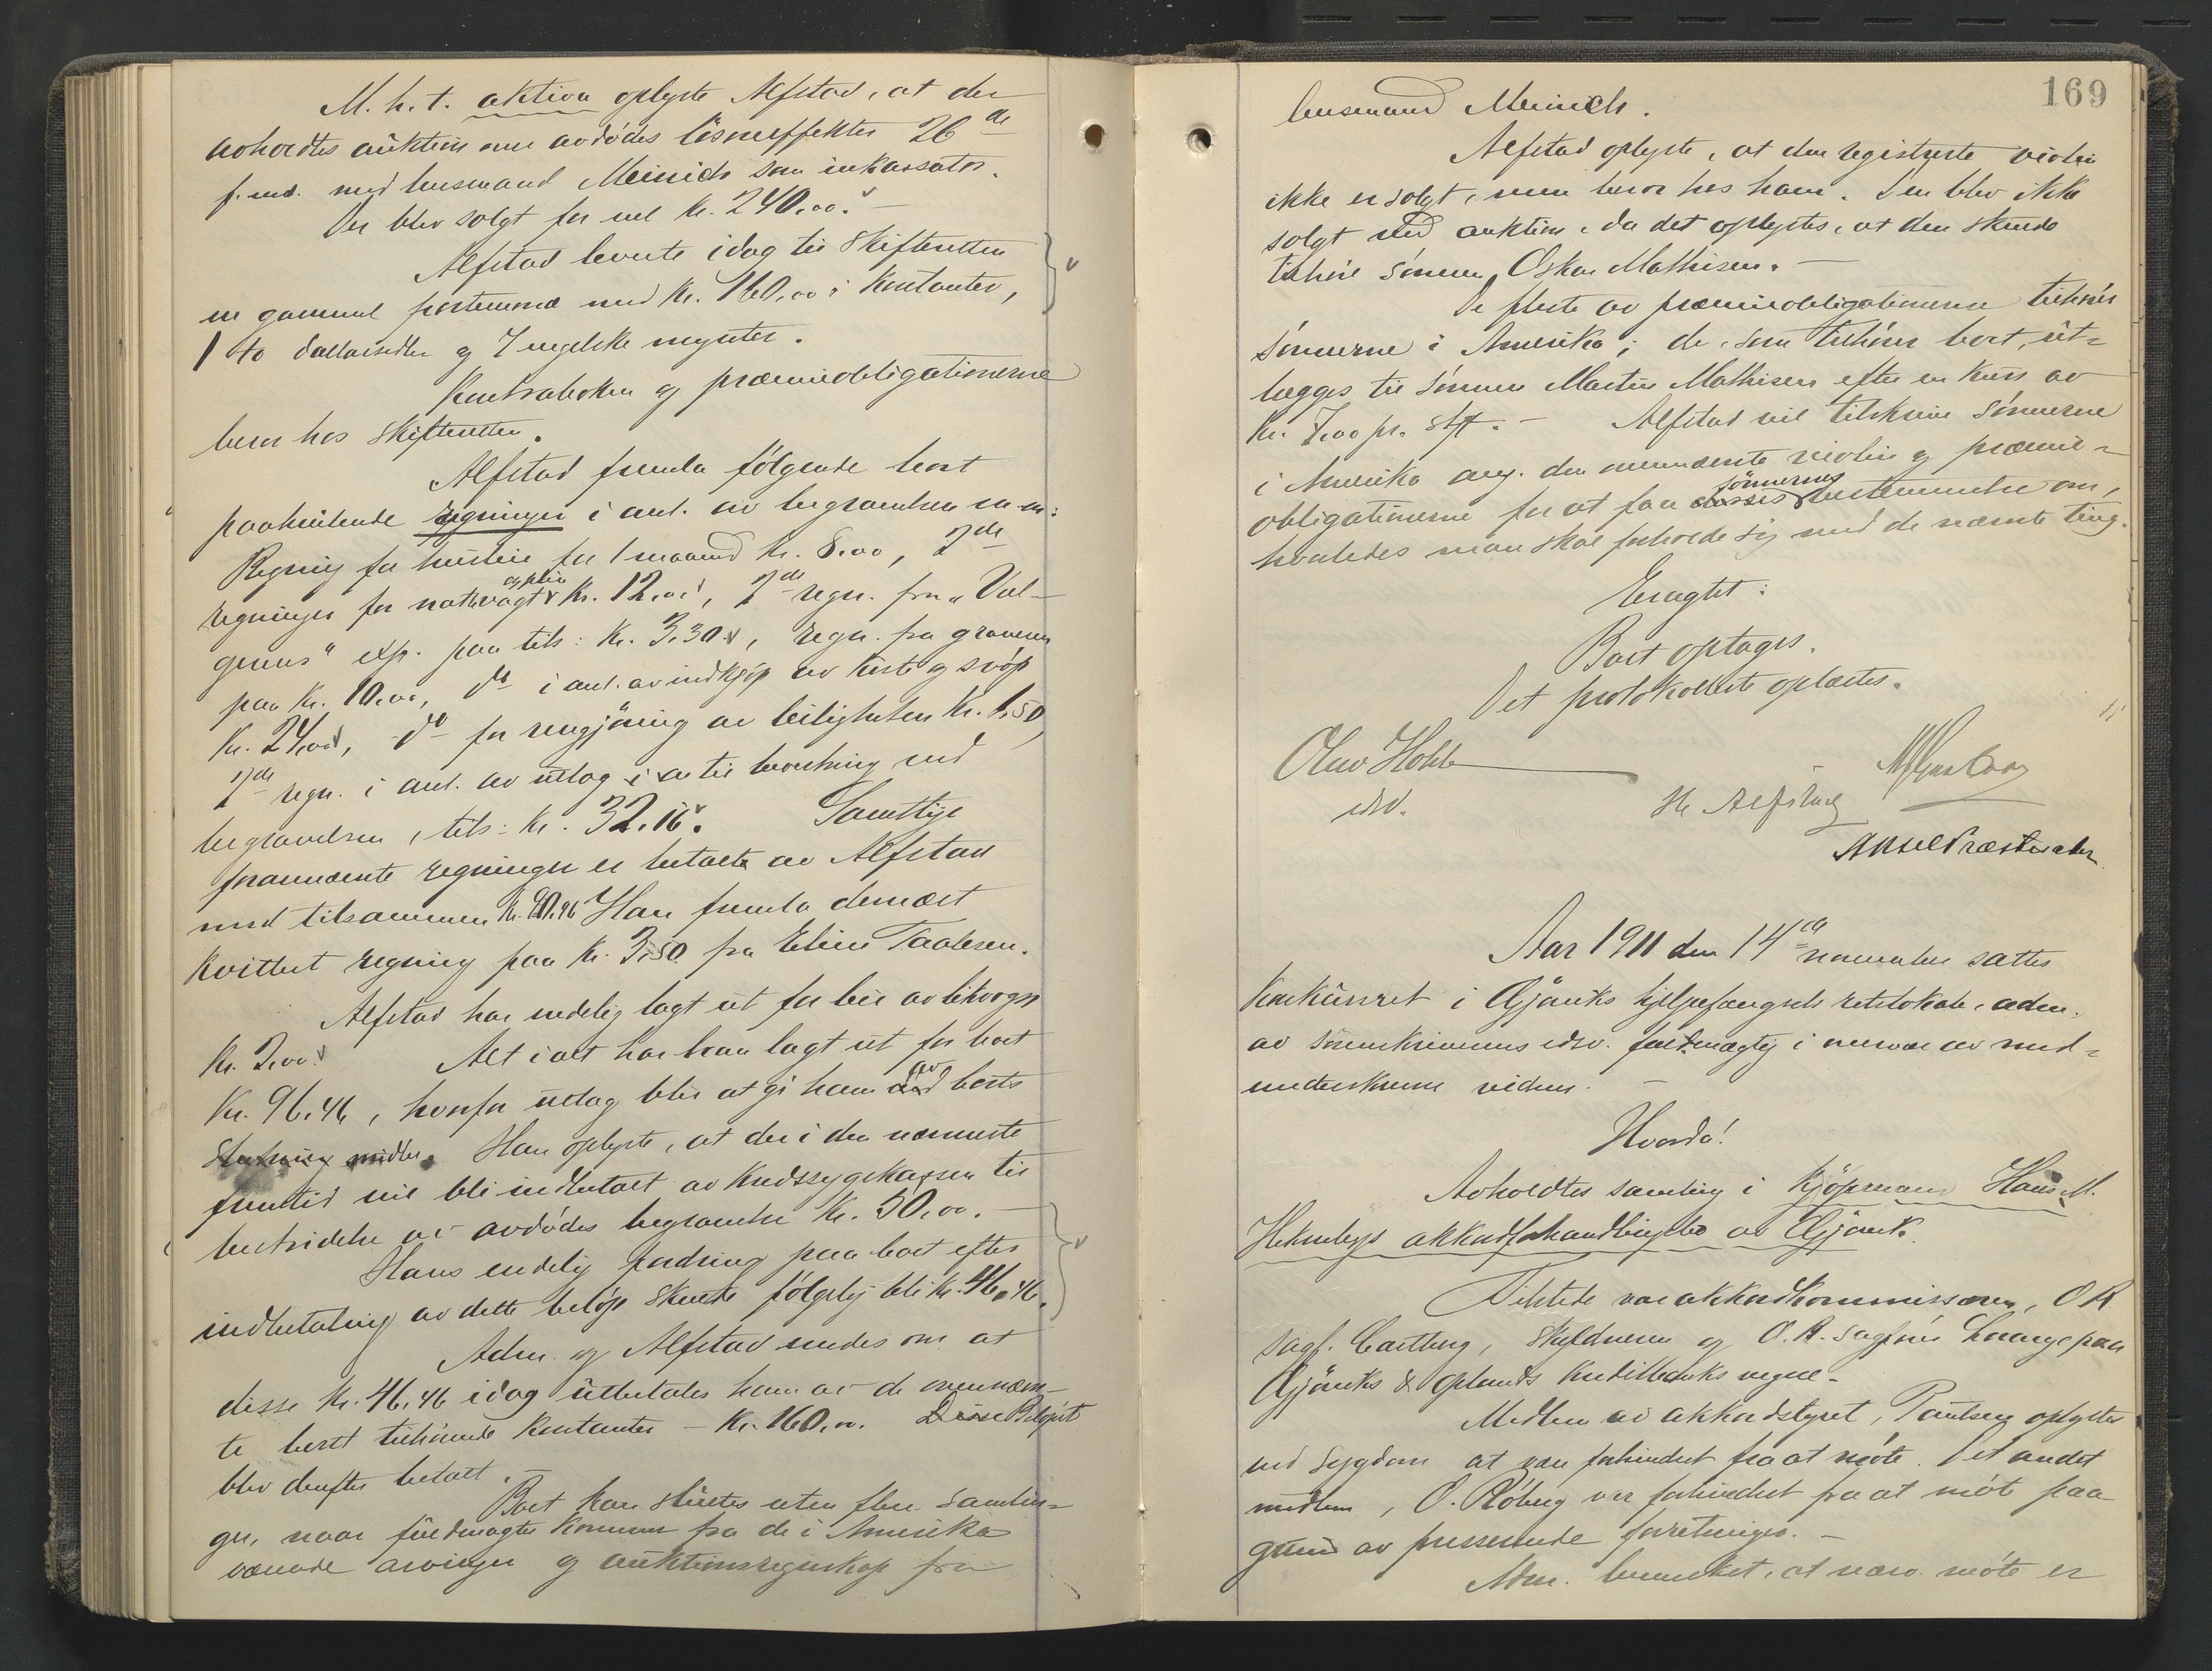 M. h. t. aktiva oplyste Alfstad, at der
avholdtes auktion over avdødes løsøreffekter 26de
f. md. med lensmand Meinich som inkassator.
Der blev solgt for vel kr. 240,00. –
Alfstad leverte idag til skifteretten
en gammel portemonnæ med kr. 160,00 i kontanter,
1 to dollarseddel og 7 engelske mynter.
Kontraboken og præmieobligationerne
beror hos skifteretten.
Alfstad fremla følgende boet
paahvilende regninger i anl. av begravelsen m. m:
Regning for husleie for 1 maaned kr. 8,00, 2de
regninger for nattevagt og pleie kr. 12,00, 2de regn. fra "Vel-
gerens" exp. paa tils: kr. 3,30, regn. fra graveren
paa kr. 10,00, do i anl. av indkjøp av kiste og svøp
kr. 24,00, do for rengjøring av leiligheten kr. 1,50,
2de regn. i anl. av utlæg til bevertning ved
begravelsen, tils: kr. 32,16. Samtlige
forannævnte regninger er betalte av Alfstad
med tilsammen kr. 90,96 Han fremla dernæst
kvittert regning paa kr. 3,50 fra Eline Paalesen.
Alfstad har endelig lagt ut for leie av likvogn
kr. 2,00. Alt i alt har han lagt ut for boet
kr. 96,46, hvorfor utlæg blir at gi ham av boets
midler. Han oplyste, at der i den nærmeste
fremtid vil bli indbetalt av kredssygekassen til
bestridelse av avdødes begravelse kr. 50,00. –
Hans endelig fordring paa boet efter
indbetaling av dette beløp skulde følgelig bli kr. 46,46.
Adm. og Alfstad enedes om at
disse kr. 46,46 idag utbetales ham av de ovennævn-
te boet tilhørende kontanter – kr. 160,00. Disse Beløpet
blev derefter betalt. –
Boet kan sluttes uten flere samlin-
ger, naar fuldmagter kommer fra de i Amerika
værende arvinger og auktionsregnskap fra
169
lensmand Meinich.
Alfstad oplyste, at den registrerte violin
ikke er solgt, men beror hos ham. Den blev ikke
solgt ved auktion, da det oplystes, at den skulde
tilhøre sønnen, Oskar Mathisen. –
De fleste av præmieobligationerne tilhører
sønnerne i Amerika; de, som tilhører boet, ut-
lægges til sønnen Martin Mathisen efter en kurs av
kr. 7,00 pr. stk. – Alfstad vil tilskrive sønnerne
i Amerika ang. den ovennævnte violin og præmie-
obligationerne for at faa disses sønnernes bestemmelse om,
hvorledes man skal forholde sig med de nævnte ting.
Eragtet:
Boet optages.
Det protokollerte oplæstes.
Olav Hohle
edsv.
H. Alfstad
Aksel Præsterud
Aar 1911 den 14de november sattes
konkursret i Gjøviks hjelpefængsels retslokale, adm.
av sorenskriverens edsv. fuldmægtig i nærvær av med-
underskrevne vidner. –
Hvorda!
Avholdtes samling i kjøpmand Hans M.
akkordforhandlingsbo av Gjøvik.
Tilstede var akkordkommissæren, O. R
sagf. Castberg, skyldneren og O. R. sagfører Lunnge paa
Gjøviks & oplands kreditbanks vegne. –
Medlem av akkordstyret, Paulsen oplystes
ved sygdom at være forhindret fra at møte. Det andet
medlem, O. Røberg var forhindret fra at møte paa
grund av presserende forretninger. –
Adm. bemerket, at nærv. møte er